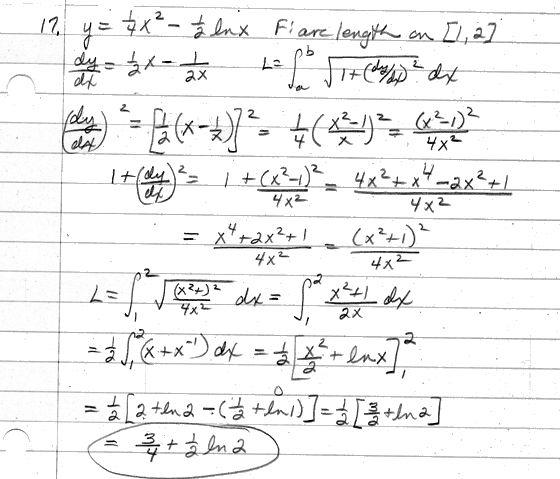 17. y = 1/4 x² - 1/2 ln x   F: arc length on [1,2]
dy/dx = 1/2 x - 1/2x   L = ∫_a^b √(1+(dy/dx)²) dx
(dy/dx)² = [1/2(x - 1/x)]² = 1/4((x²-1)/x)² = (x²-1)²/4x²
1+(dy/dx)² = 1 + (x²-1)²/4x² = (4x²+x⁴-2x²+1)/4x²
= (x⁴+2x²+1)/4x² = (x²+1)²/4x²
L = ∫_1^2 √((x²+1)²/4x²) dx = ∫_1^2 (x²+1)/2x dx
= 1/2 ∫_1^2 (x+x⁻¹) dx = 1/2 [x²/2 + ln x]_1^2
0
= 1/2 [2+ln 2 - (1/2 + ln 1)] = 1/2 [3/2 + ln 2]
= 3/4 + 1/2 ln 2